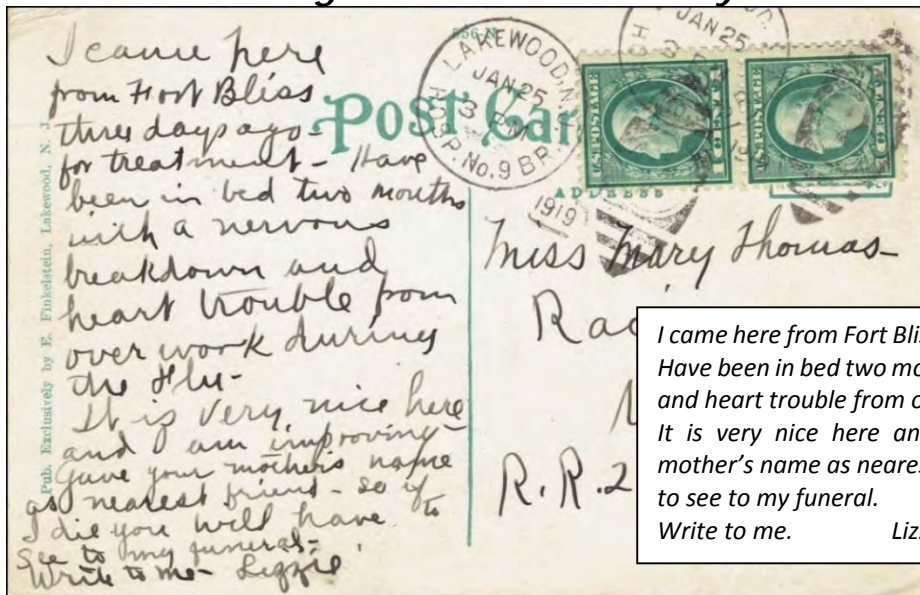 I came here
from Fort Bliss
three days ago-
for treatment- Have
been in bed two months
with a nervous
breakdown and
heart trouble from
over work during
the Flu-
It is very nice here
and I am improving-
Gave your mother's name
as nearest friend- so if
I die you will have to
see to my funeral-
Write to me- Lizzie
Pub. Exclusively by E. Finkelstein, Lakewood, N. J.
556-N
POST Car
ADDRESS
LAKEWOOD, N.
JAN 25
3 PM
1919
HOSP. No. 9 BR.
JAN 25
U.S. POSTAGE
U.S. POSTAGE
Miss Mary Thomas-
Rac
R.R.2
I came here from Fort Blis
Have been in bed two mo
and heart trouble from o
It is very nice here an
mother's name as neares
to see to my funeral.
Write to me. Liz